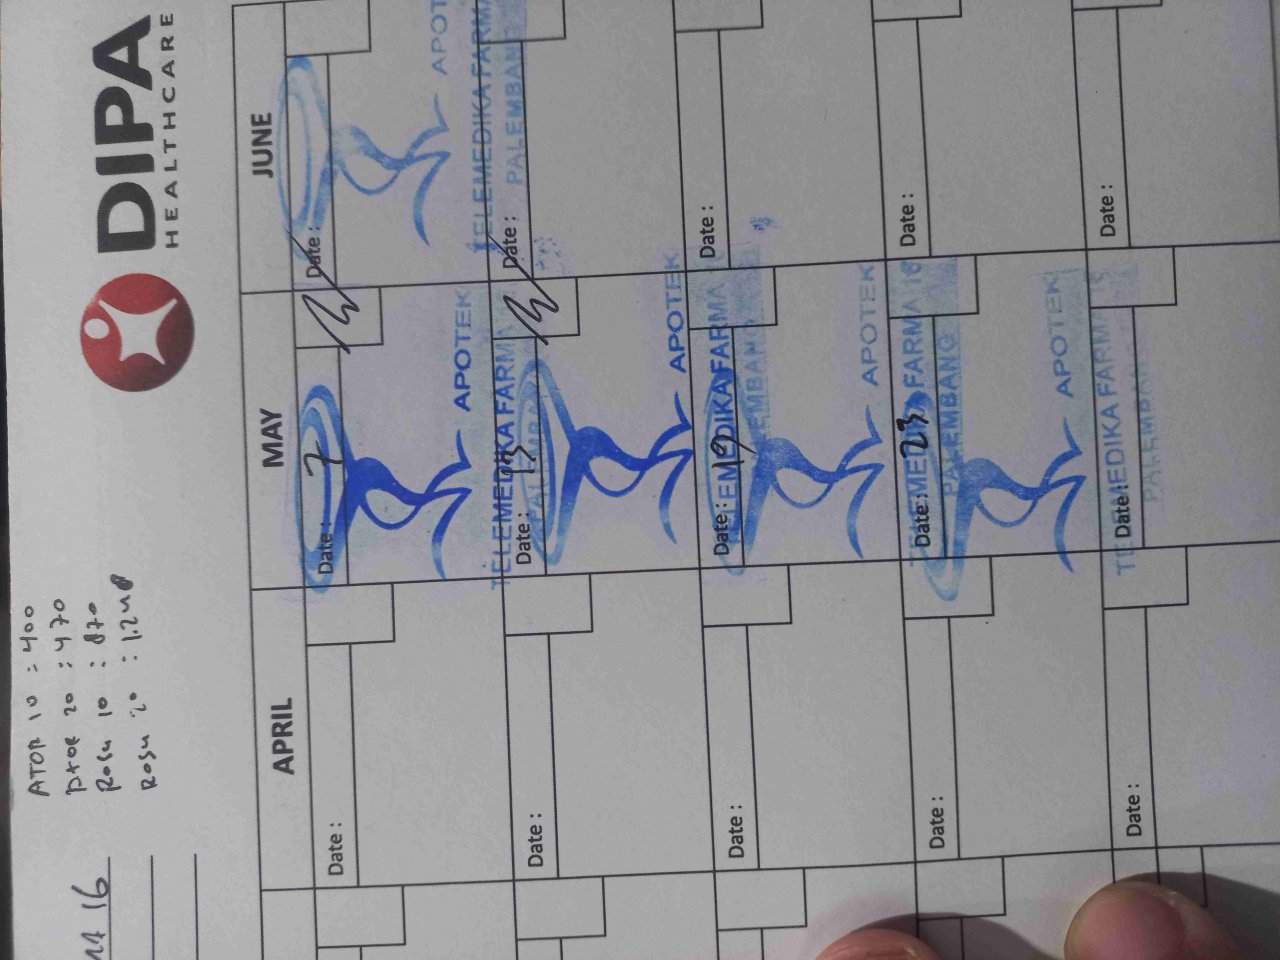 DIPA
HEALTHCARE
ATOR 10 : 400
ATOR 20 : 470
ROSU 10 : 870
ROSU 20 :
16
APRIL
MAY
JUNE
Date :
Date : 7
Date :
APOTEK
APOT
TELEMEDIKA FARMA
TELEMEDIKA FARMA
PALEMBANG
PALEMBANG
Date :
Date : 13
Date :
APOTEK
TELEMEDIKA FARMA
PALEMBANG
Date :
Date : 19
Date :
APOTEK
TELEMEDIKA FARMA 16
PALEMBANG
Date :
Date : 23
Date :
APOTEK
TELEMEDIKA FARMA
PALEMBANG
Date :
Date :
Date :